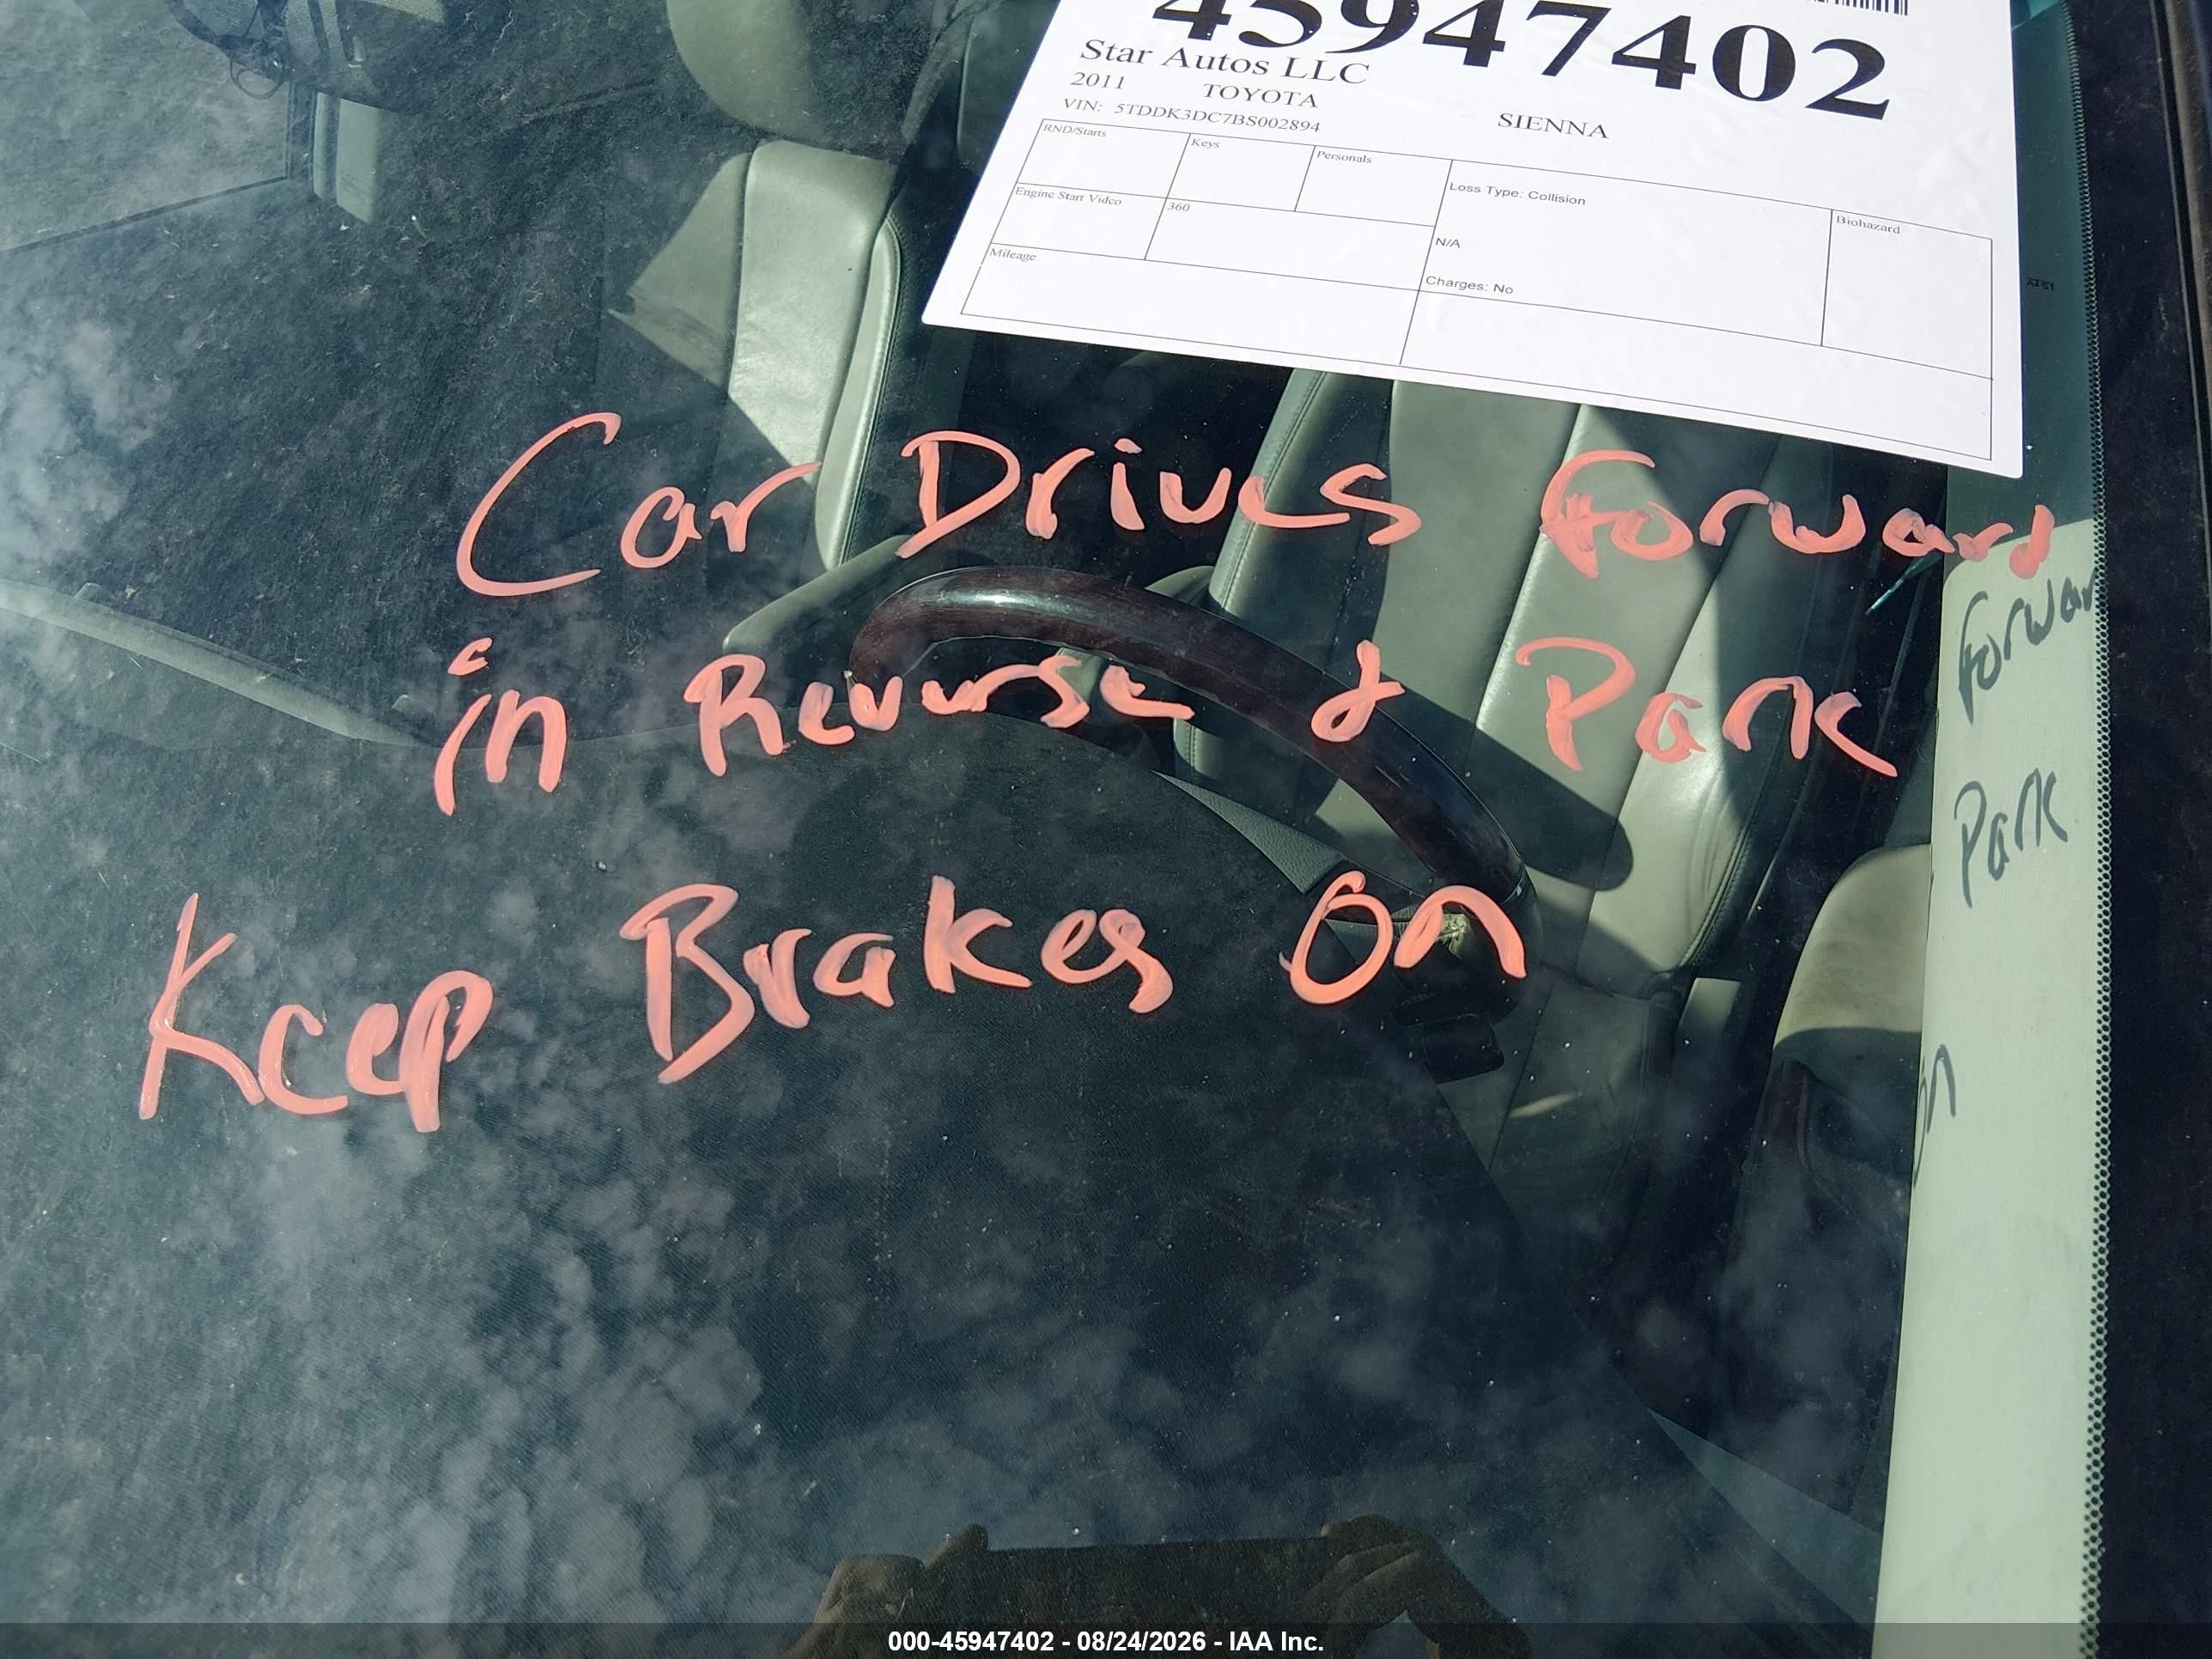 45947402
Star Autos LLC
2011 TOYOTA SIENNA
VIN: 5TDDK3DC7BS002894
RND/Starts Keys Personals
Loss Type: Collision
Biohazard
Engine Start Video 360
N/A
Mileage
Charges: No
Car Drives Forward
in Reverse & Park
Keep Brakes On
Forwar
Park
on
000-45947402 - 08/24/2026 - IAA Inc.